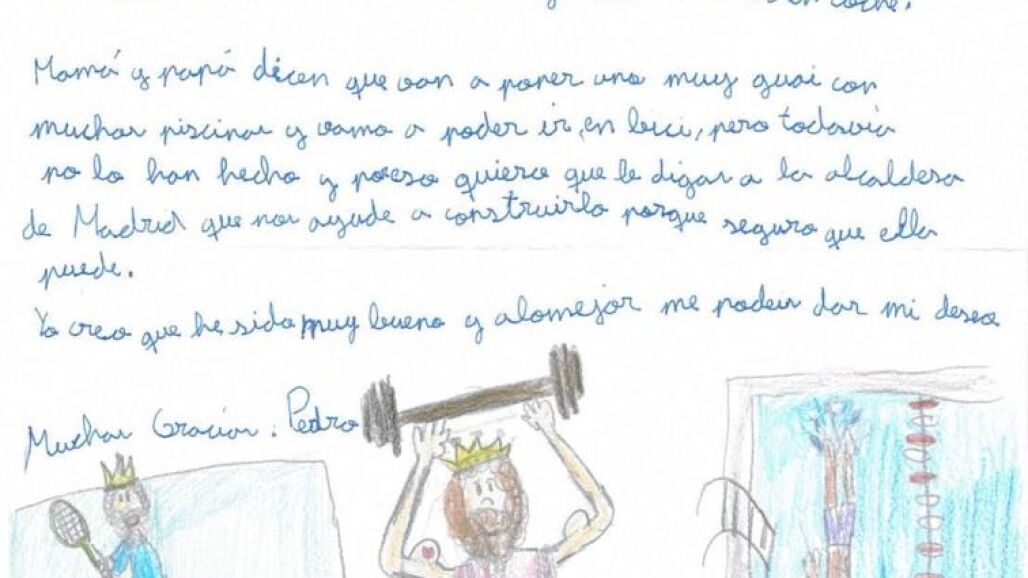 en coche.
Mamá y papá dicen que van a poner una muy guai con
muchas piscinas y vamo a poder ir, en bici, pero todavía
no lo han hecho y poreso quiero que le digas a la alcaldesa
de Madrid que nos ayude a construirlo porque seguro que ella
puede.
Yo creo que he sido muy bueno y alomejor me podeis dar mi deseo
Muchas Gracias. Pedro